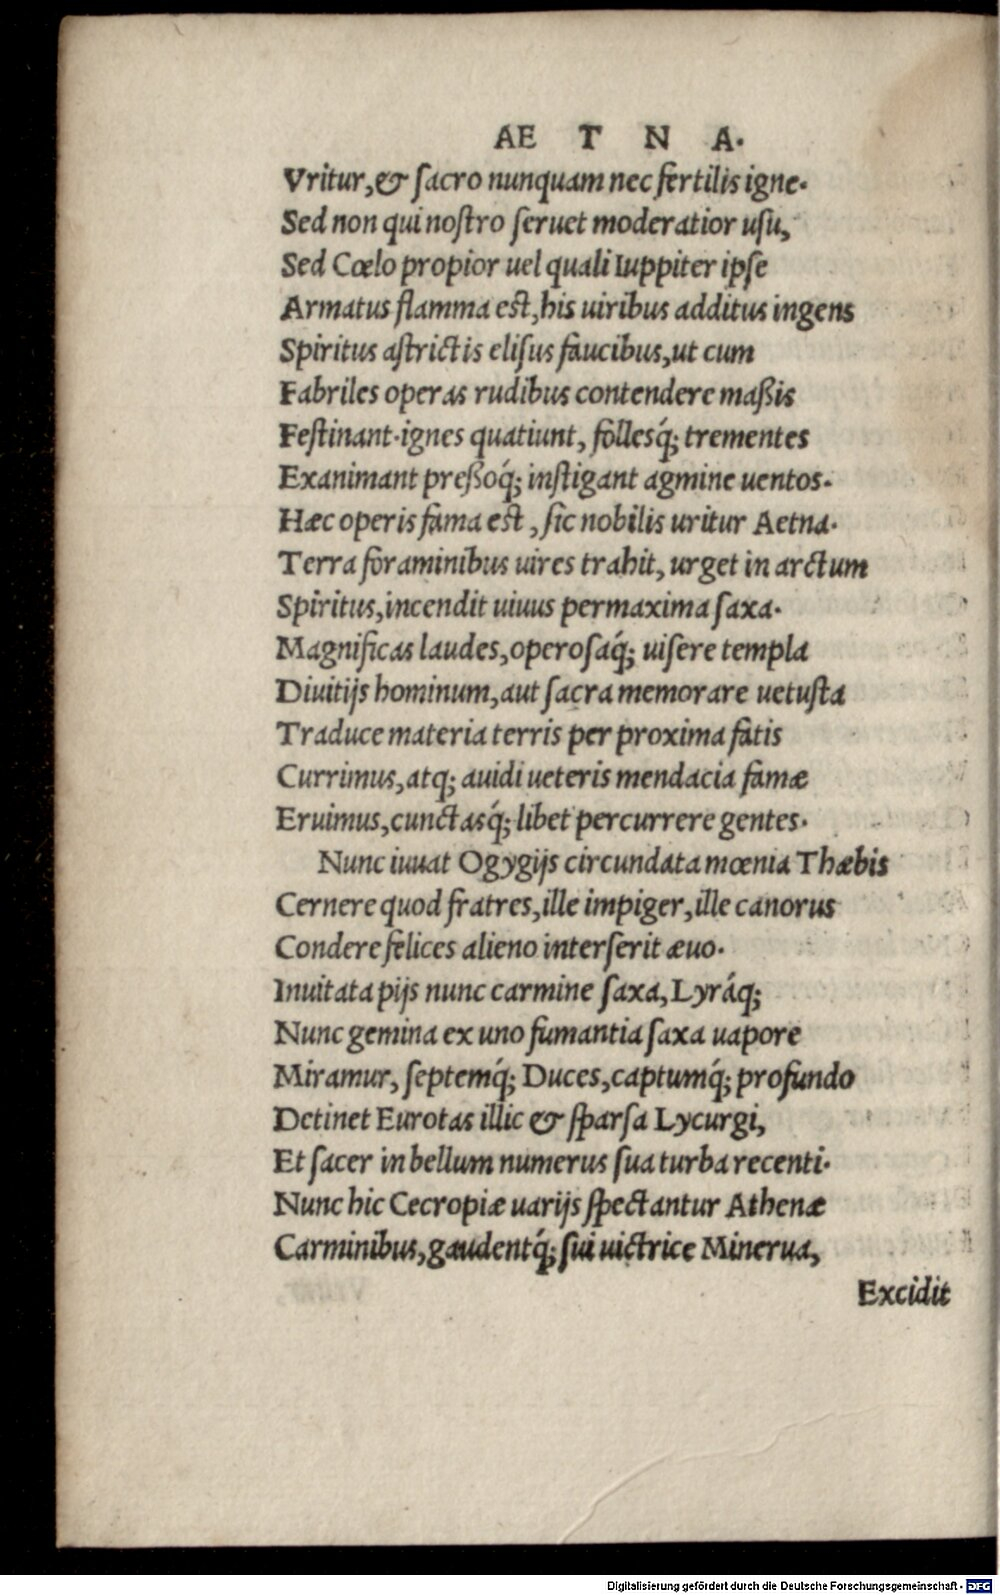 AE T N A.
Vritur,& ſacro nunquam nec fertilis igne.
Sed non qui noſtro ſeruet moderatior uſu,
Sed Cœlo propior uel quali Iuppiter ipſe
Armatus flamma eſt,his uiribus additus ingens
Spiritus aſtrictis eliſus faucibus,ut cum
Fabriles operas rudibus contendere maßis
Feſtinant.ignes quatiunt, follesq́; trementes
Exanimant preßoq́; inſtigant agmine uentos.
Hæc operis fama eſt , ſic nobilis uritur Aetna.
Terra foraminibus uires trahit, urget in arctum
Spiritus,incendit uiuus permaxima ſaxa.
Magnificas laudes,operoſaq́; uiſere templa
Diuitijs hominum,aut ſacra memorare uetuſta
Traduce materia terris per proxima fatis
Currimus,atq; auidi ueteris mendacia famæ
Eruimus,cunctasq́; libet percurrere gentes.
Nunc iuuat Ogygijs circundata mœnia Thæbis
Cernere quod fratres,ille impiger,ille canorus
Condere felices alieno interſerit æuo.
Inuitata pijs nunc carmine ſaxa,Lyráq;
Nunc gemina ex uno fumantia ſaxa uapore
Miramur, ſeptemq́; Duces,captumq́; profundo
Detinet Eurotas illic & ſparſa Lycurgi,
Et ſacer in bellum numerus ſua turba recenti.
Nunc hic Cecropiæ uarijs ſpectantur Athenæ
Carminibus,gaudentq́; ſui uictrice Minerua,
Excidit
Digitalisierung gefördert durch die Deutsche Forschungsgemeinschaft - DFG